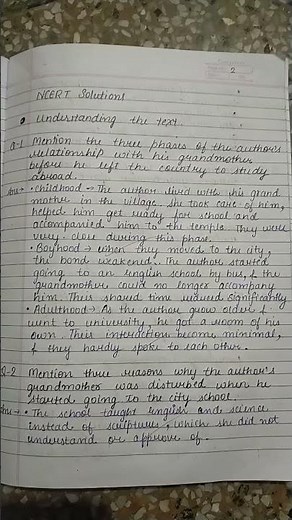 2
NCERT Solutions
• Understanding the text.
Q-1 Mention the three phases of the author's
relationship with his grandmother
before he left the country to study
abroad.
Ans → • Childhood → The author lived with his grand
mother in the village. She took care of him,
helped him get ready for school and
accompanied him to the temple. They were
very close during this phase.
• Boyhood → when they moved to the city,
the bond weakened. The author started
going to an english school by bus, & the
grandmother could no longer accompany
him. Their shared time reduced significantly
• Adulthood → As the author grew older &
went to university, he got a room of his
own. Their interaction became minimal,
& they hardly spoke to each other.
Q-2 Mention three reasons why the author's
grandmother was disturbed when he
started going to the city school.
Ans → • The school taught english and science
instead of scriptures, which she did not
understand or approve of.